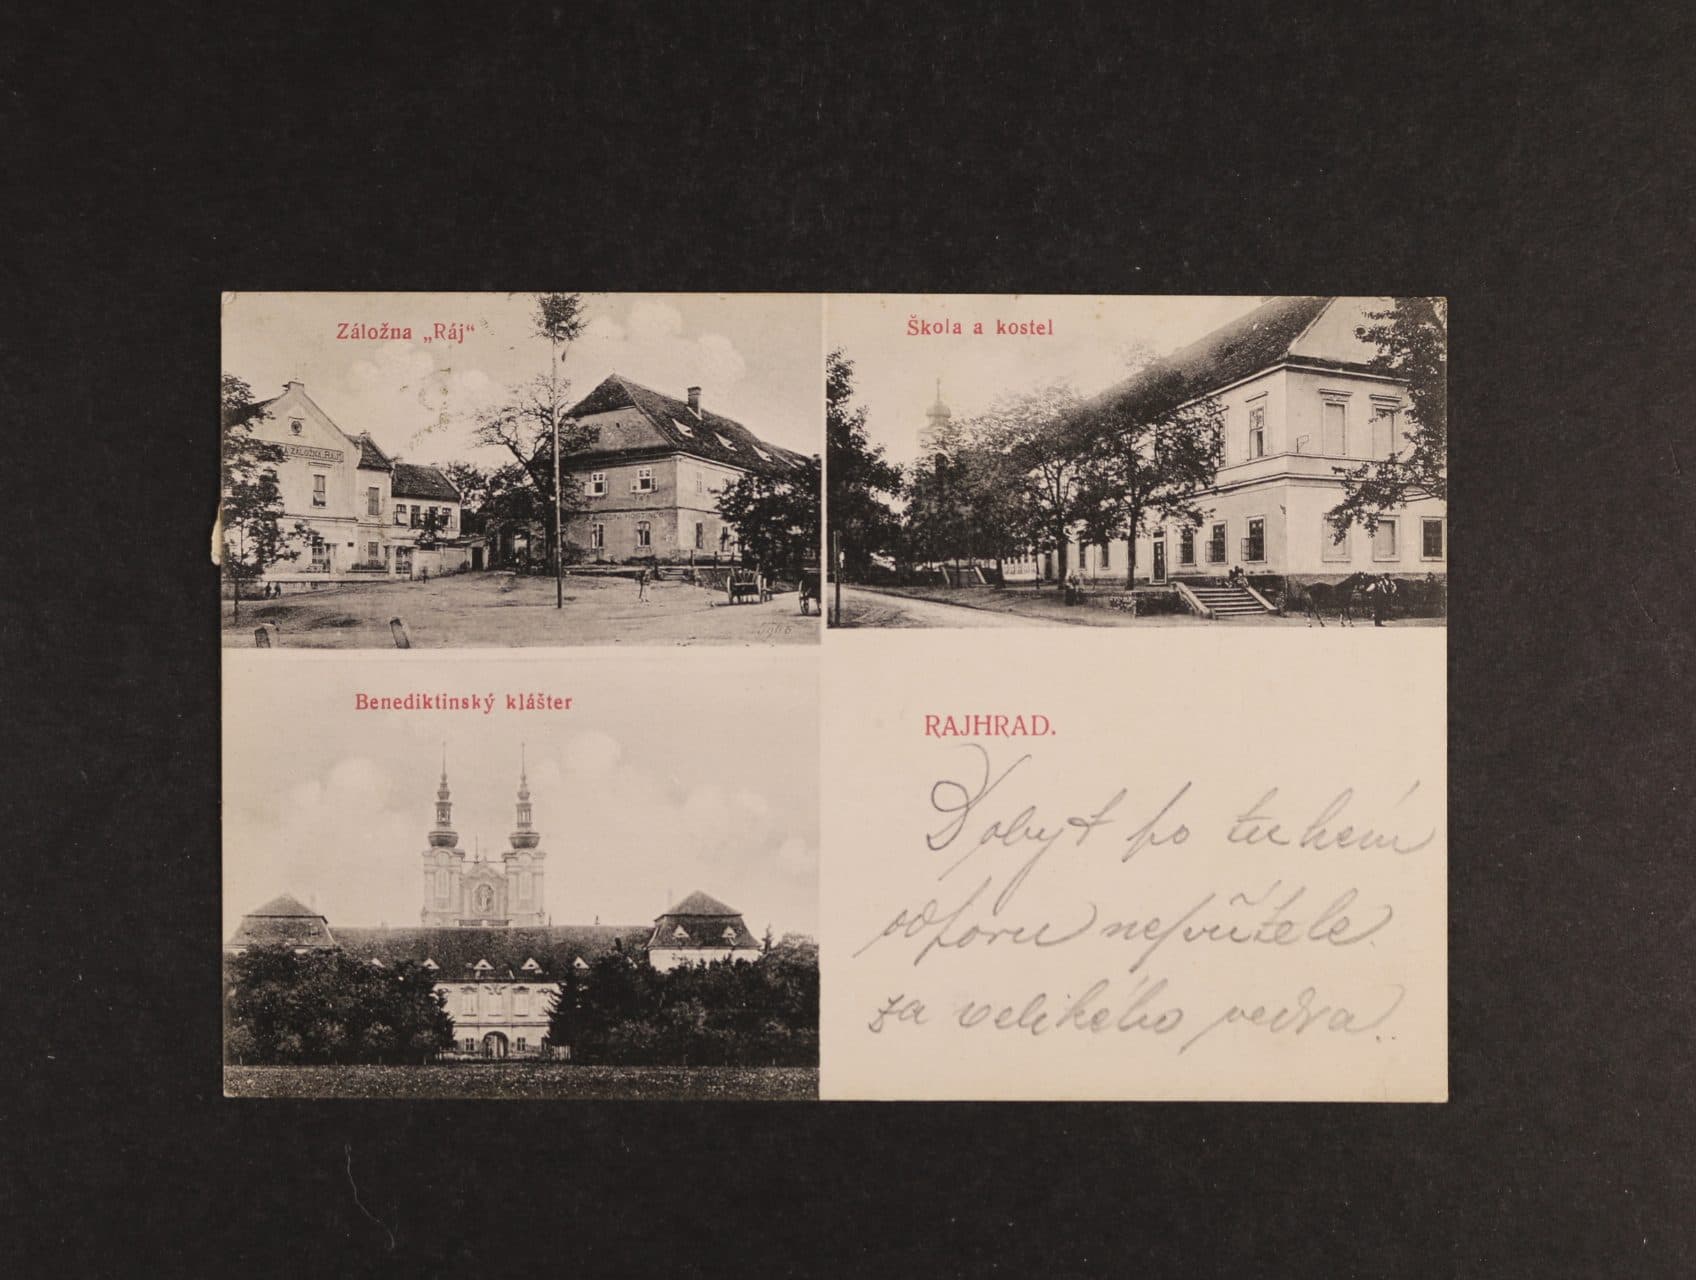 Záložna „Ráj“
Škola a kostel
ZÁLOŽNA „RÁJ“
Benediktinský klášter
RAJHRAD.
Dobyt po tuhém
odporu nepřítele
za velikého vedra.